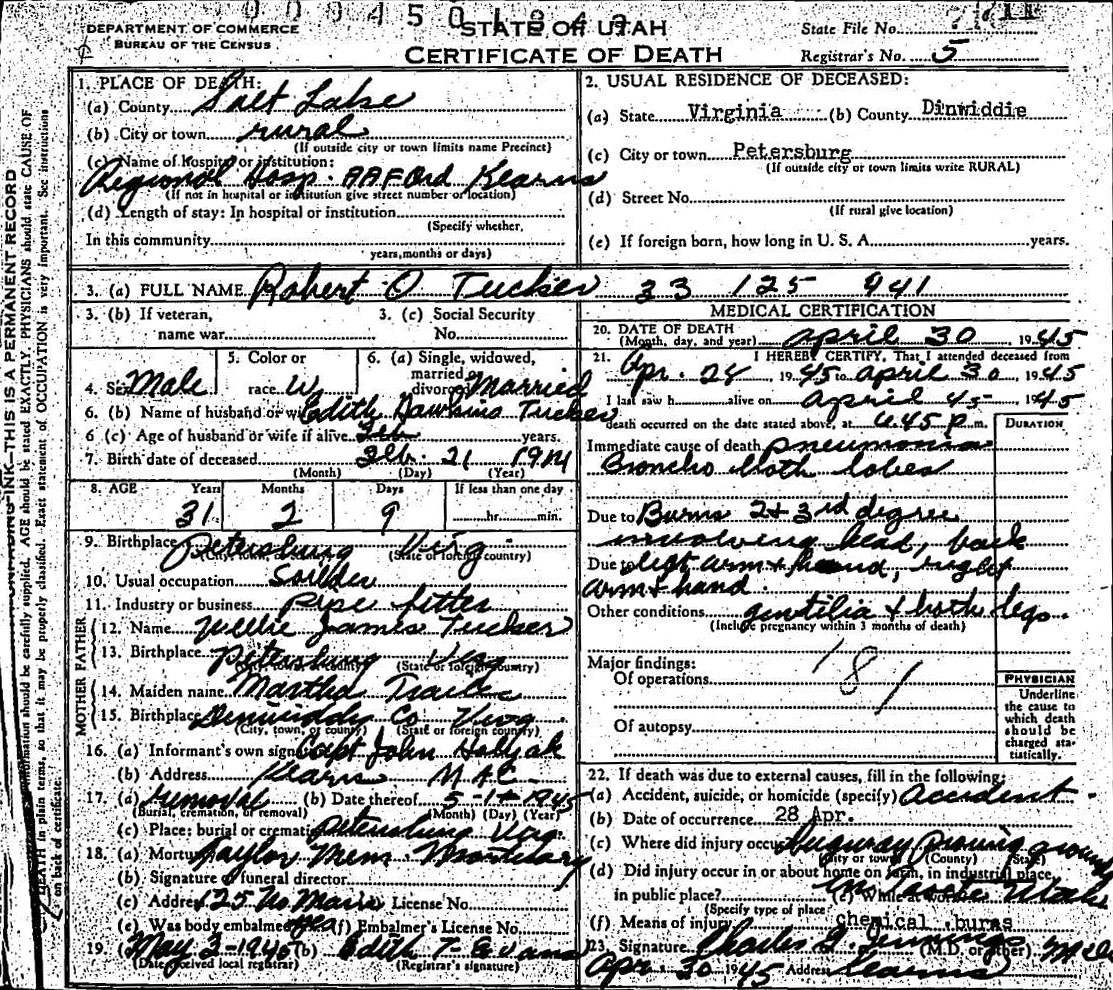 STATE OF UTAH
DEPARTMENT OF COMMERCE
BUREAU OF THE CENSUS
CERTIFICATE OF DEATH
State File No.
Registrar's No. 5
1. PLACE OF DEATH:
(a) County Salt Lake
(b) City or town rural
(If outside city or town limits name Precinct)
(c) Name of hospital or institution:
Regional Hosp. AAF Kearns
(If not in hospital or institution give street number or location)
(d) Length of stay: In hospital or institution
(Specify whether,
In this community
years, months or days)
2. USUAL RESIDENCE OF DECEASED:
(a) State Virginia (b) County Dinwiddie
(c) City or town Petersburg
(If outside city or town limits write RURAL)
(d) Street No.
(If rural give location)
(e) If foreign born, how long in U. S. A. years.
3. (a) FULL NAME Robert O Tucker 33 125 941
3. (b) If veteran, name war
3. (c) Social Security No.
4. Sex Male
5. Color or race W
6. (a) Single, widowed, married or divorced Married
6. (b) Name of husband or wife Edith Hawkins Tucker
6 (c) Age of husband or wife if alive years.
7. Birth date of deceased Feb. 21 1914
(Month) (Day) (Year)
8. AGE Years Months Days If less than one day
31 2 9 hr. min.
9. Birthplace Petersburg Virg.
(City, town, or county) (State or foreign country)
10. Usual occupation Soilder
11. Industry or business pipe fitter
FATHER
12. Name Willie James Tucker
13. Birthplace Petersburg Virg
(State or foreign country)
MOTHER
14. Maiden name Martha
15. Birthplace Co. Virg.
(City, town, or county) (State or foreign country)
16. (a) Informant's own signature Capt John
(b) Address Kearns
17. (a) removal (b) Date thereof 5-1-1945
(Burial, cremation, or removal) (Month) (Day) (Year)
(c) Place: burial or cremation Petersburg Virg
18. (a) Mortuary Taylor Mem. Mortuary
(b) Signature of funeral director
(c) Address 125 No Main License No.
(e) Was body embalmed yes (f) Embalmer's License No.
19 (a) May 3-1945 (b) Edith T. Evans
(Date received local registrar) (Registrar's signature)
MEDICAL CERTIFICATION
20. DATE OF DEATH
(Month, day, and year) April 30 1945
21. I HEREBY CERTIFY, That I attended deceased from
Apr. 28, 1945 to April 30 1945
I last saw h alive on April 45 1945
death occurred on the date stated above, at 6.45 P. m.
DURATION
Immediate cause of death pneumonia
Broncho both lobes
Due to Burns 2+3rd degree
involving head, back
Due to left arm + hand, right
arm + hand.
Other conditions gentilia + both legs.
(Include pregnancy within 3 months of death)
Major findings:
Of operations
181
Of autopsy
PHYSICIAN
Underline
the cause to
which death
should be
charged sta-
tistically.
22. If death was due to external causes, fill in the following:
(a) Accident, suicide, or homicide (specify) Accident.
(b) Date of occurrence 28 Apr.
(c) Where did injury occur Dugway Proving ground
(City or town) (County) (State)
(d) Did injury occur in or about home on farm, in industrial place,
in public place? Utah
(Specify type of place) (e) While at work
(f) Means of injury chemical burns
23. Signature Charles (M.D. or other)
Apr. 30 1945 Address Kearns